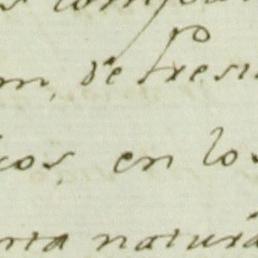 s compa
m, de Presi
cos, en los
ria natura